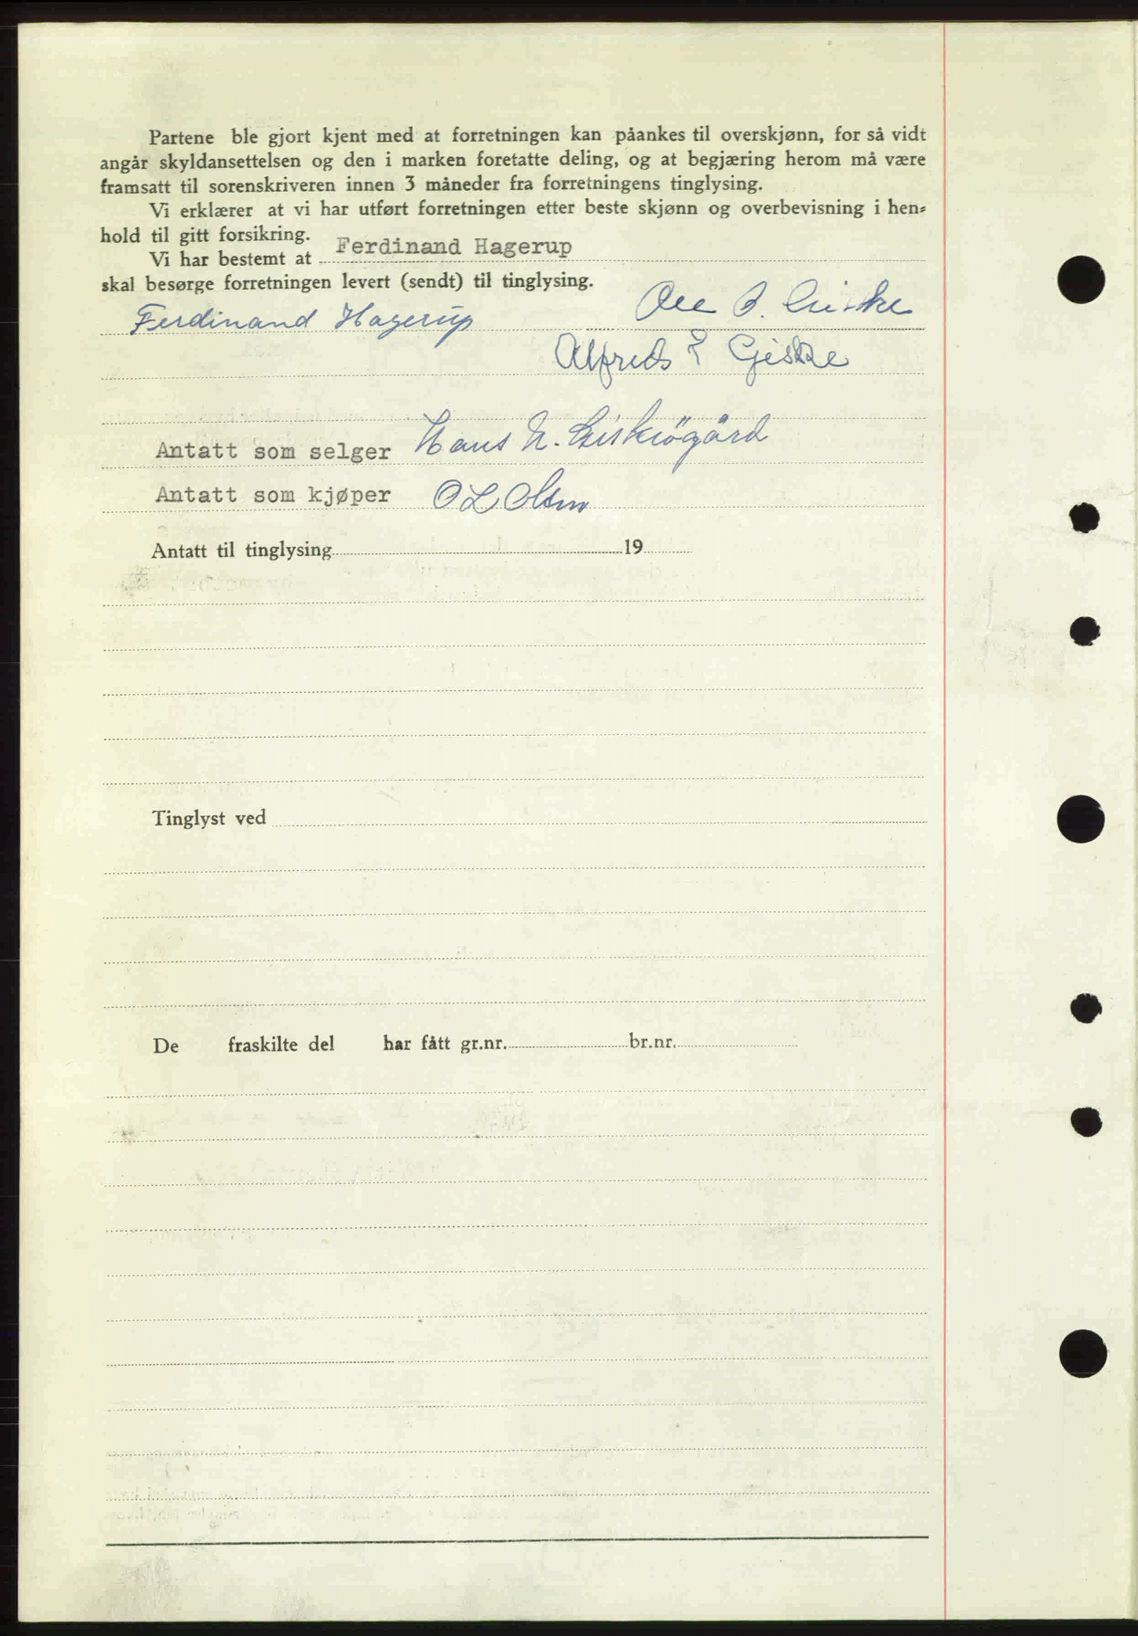 Partene ble gjort kjent med at forretningen kan påankes til overskjønn, for så vidt
angår skyldansettelsen og den i marken foretatte deling, og at begjæring herom må være
framsatt til sorenskriveren innen 3 måneder fra forretningens tinglysing.
Vi erklærer at vi har utført forretningen etter beste skjønn og overbevisning i hen=
hold til gitt forsikring.
Vi har bestemt at Ferdinand Hagerup
skal besørge forretningen levert (sendt) til tinglysing.
Ole
Ferdinand Hagerup
Alfreds Giske
Antatt som selger Hans
Antatt som kjøper O L Olsen
Antatt til tinglysing 19
Tinglyst ved
De fraskilte del har fått gr.nr. br.nr.